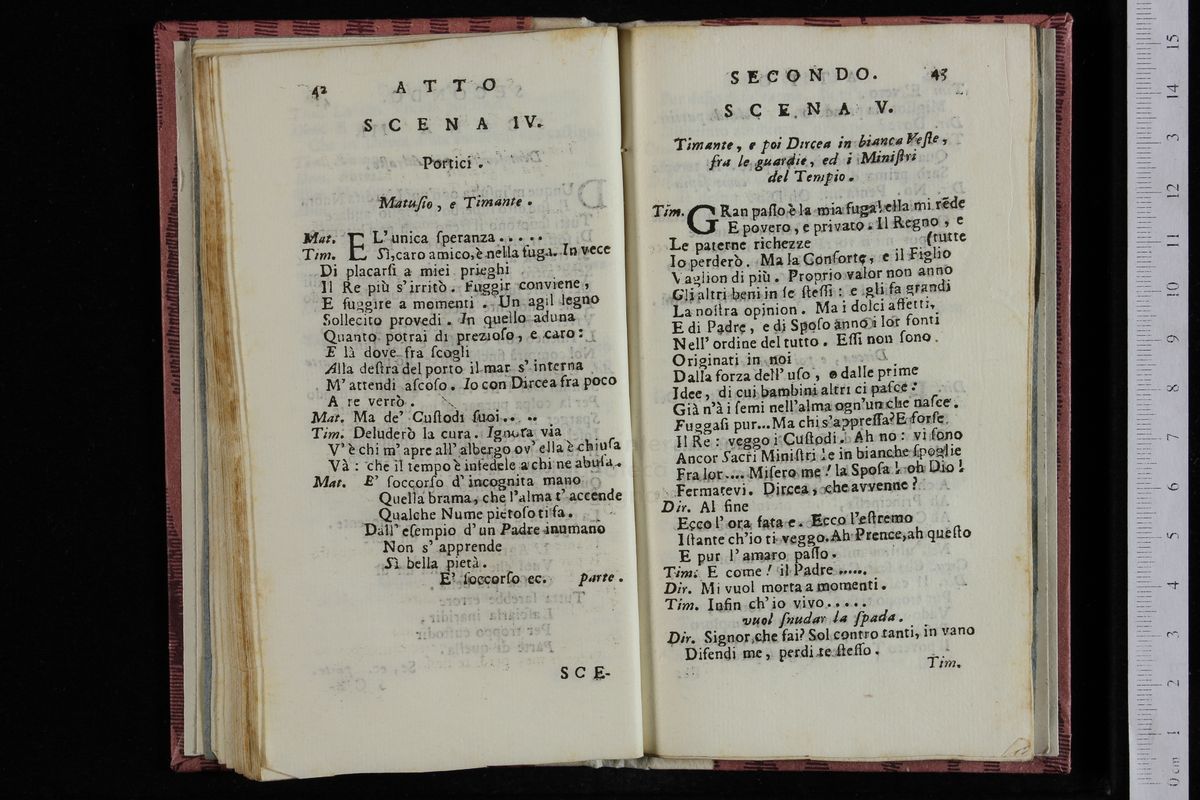 42 ATTO
SCENA IV.
Portici.
Matuſio, e Timante.
Mat. E L' unica ſperanza.....
Tim. Sì, caro amico, è nella fuga. In vece
Di placarſi a miei prieghi
Il Re più s' irritò. Fuggir conviene,
E fuggire a momenti. Un agil legno
Sollecito provedi. In quello aduna
Quanto potrai di prezioſo, e caro:
E là dove fra ſcogli
Alla deſtra del porto il mar s' interna
M' attendi aſcoſo. Io con Dircea fra poco
A te verrò.
Mat. Ma de' Cuſtodi ſuoi.....
Tim. Deluderò la cura. Ignota via
V' è chi m' apre all' albergo ov' ella è chiuſa
Và: che il tempo è infedele a chi ne abuſa.
Mat. E' ſoccorſo d' incognita mano
Quella brama, che l'alma t' accende
Qualche Nume pietoſo ti fa.
Dall' eſempio d' un Padre inumano
Non s' apprende
Sì bella pietà.
E' ſoccorſo ec. parte.
SCE-
SECONDO. 43
SCENA V.
Timante, e poi Dircea in bianca Veſte,
fra le guardie, ed i Miniſtri
del Tempio.
Tim. GRan paſſo è la mia fuga! ella mi rẽde
E povero, e privato. Il Regno, e
Le paterne richezze (tutte
Io perderò. Ma la Conſorte, e il Figlio
Vaglion di più. Proprio valor non anno
Gli altri beni in ſe ſteſſi: e gli fa grandi
La noſtra opinion. Ma i dolci affetti,
E di Padre, e di Spoſo anno i lor fonti
Nell' ordine del tutto. Eſſi non ſono
Originati in noi
Dalla forza dell' uſo, o dalle prime
Idee, di cui bambini altri ci paſce:
Già n'à i ſemi nell'alma ogn'un che naſce.
Fuggaſi pur...Ma chi s'appreſſa? E forſe
Il Re: veggo i Cuſtodi. Ah no: vi ſono
Ancor Sacri Miniſtri: e in bianche ſpoglie
Fra lor.... Miſero me! la Spoſa! oh Dio!
Fermatevi. Dircea, che avvenne?
Dir. Al fine
Ecco l' ora fata e. Ecco l'eſtremo
Iſtante ch'io ti veggo. Ah Prence, ah queſto
E pur l' amaro paſſo.
Tim. E come! il Padre......
Dir. Mi vuol morta a momenti.
Tim. Infin ch' io vivo.....
vuol ſnudar la ſpada.
Dir. Signor, che fai? Sol contro tanti, in vano
Difendi me, perdi te ſteſſo.
Tim.